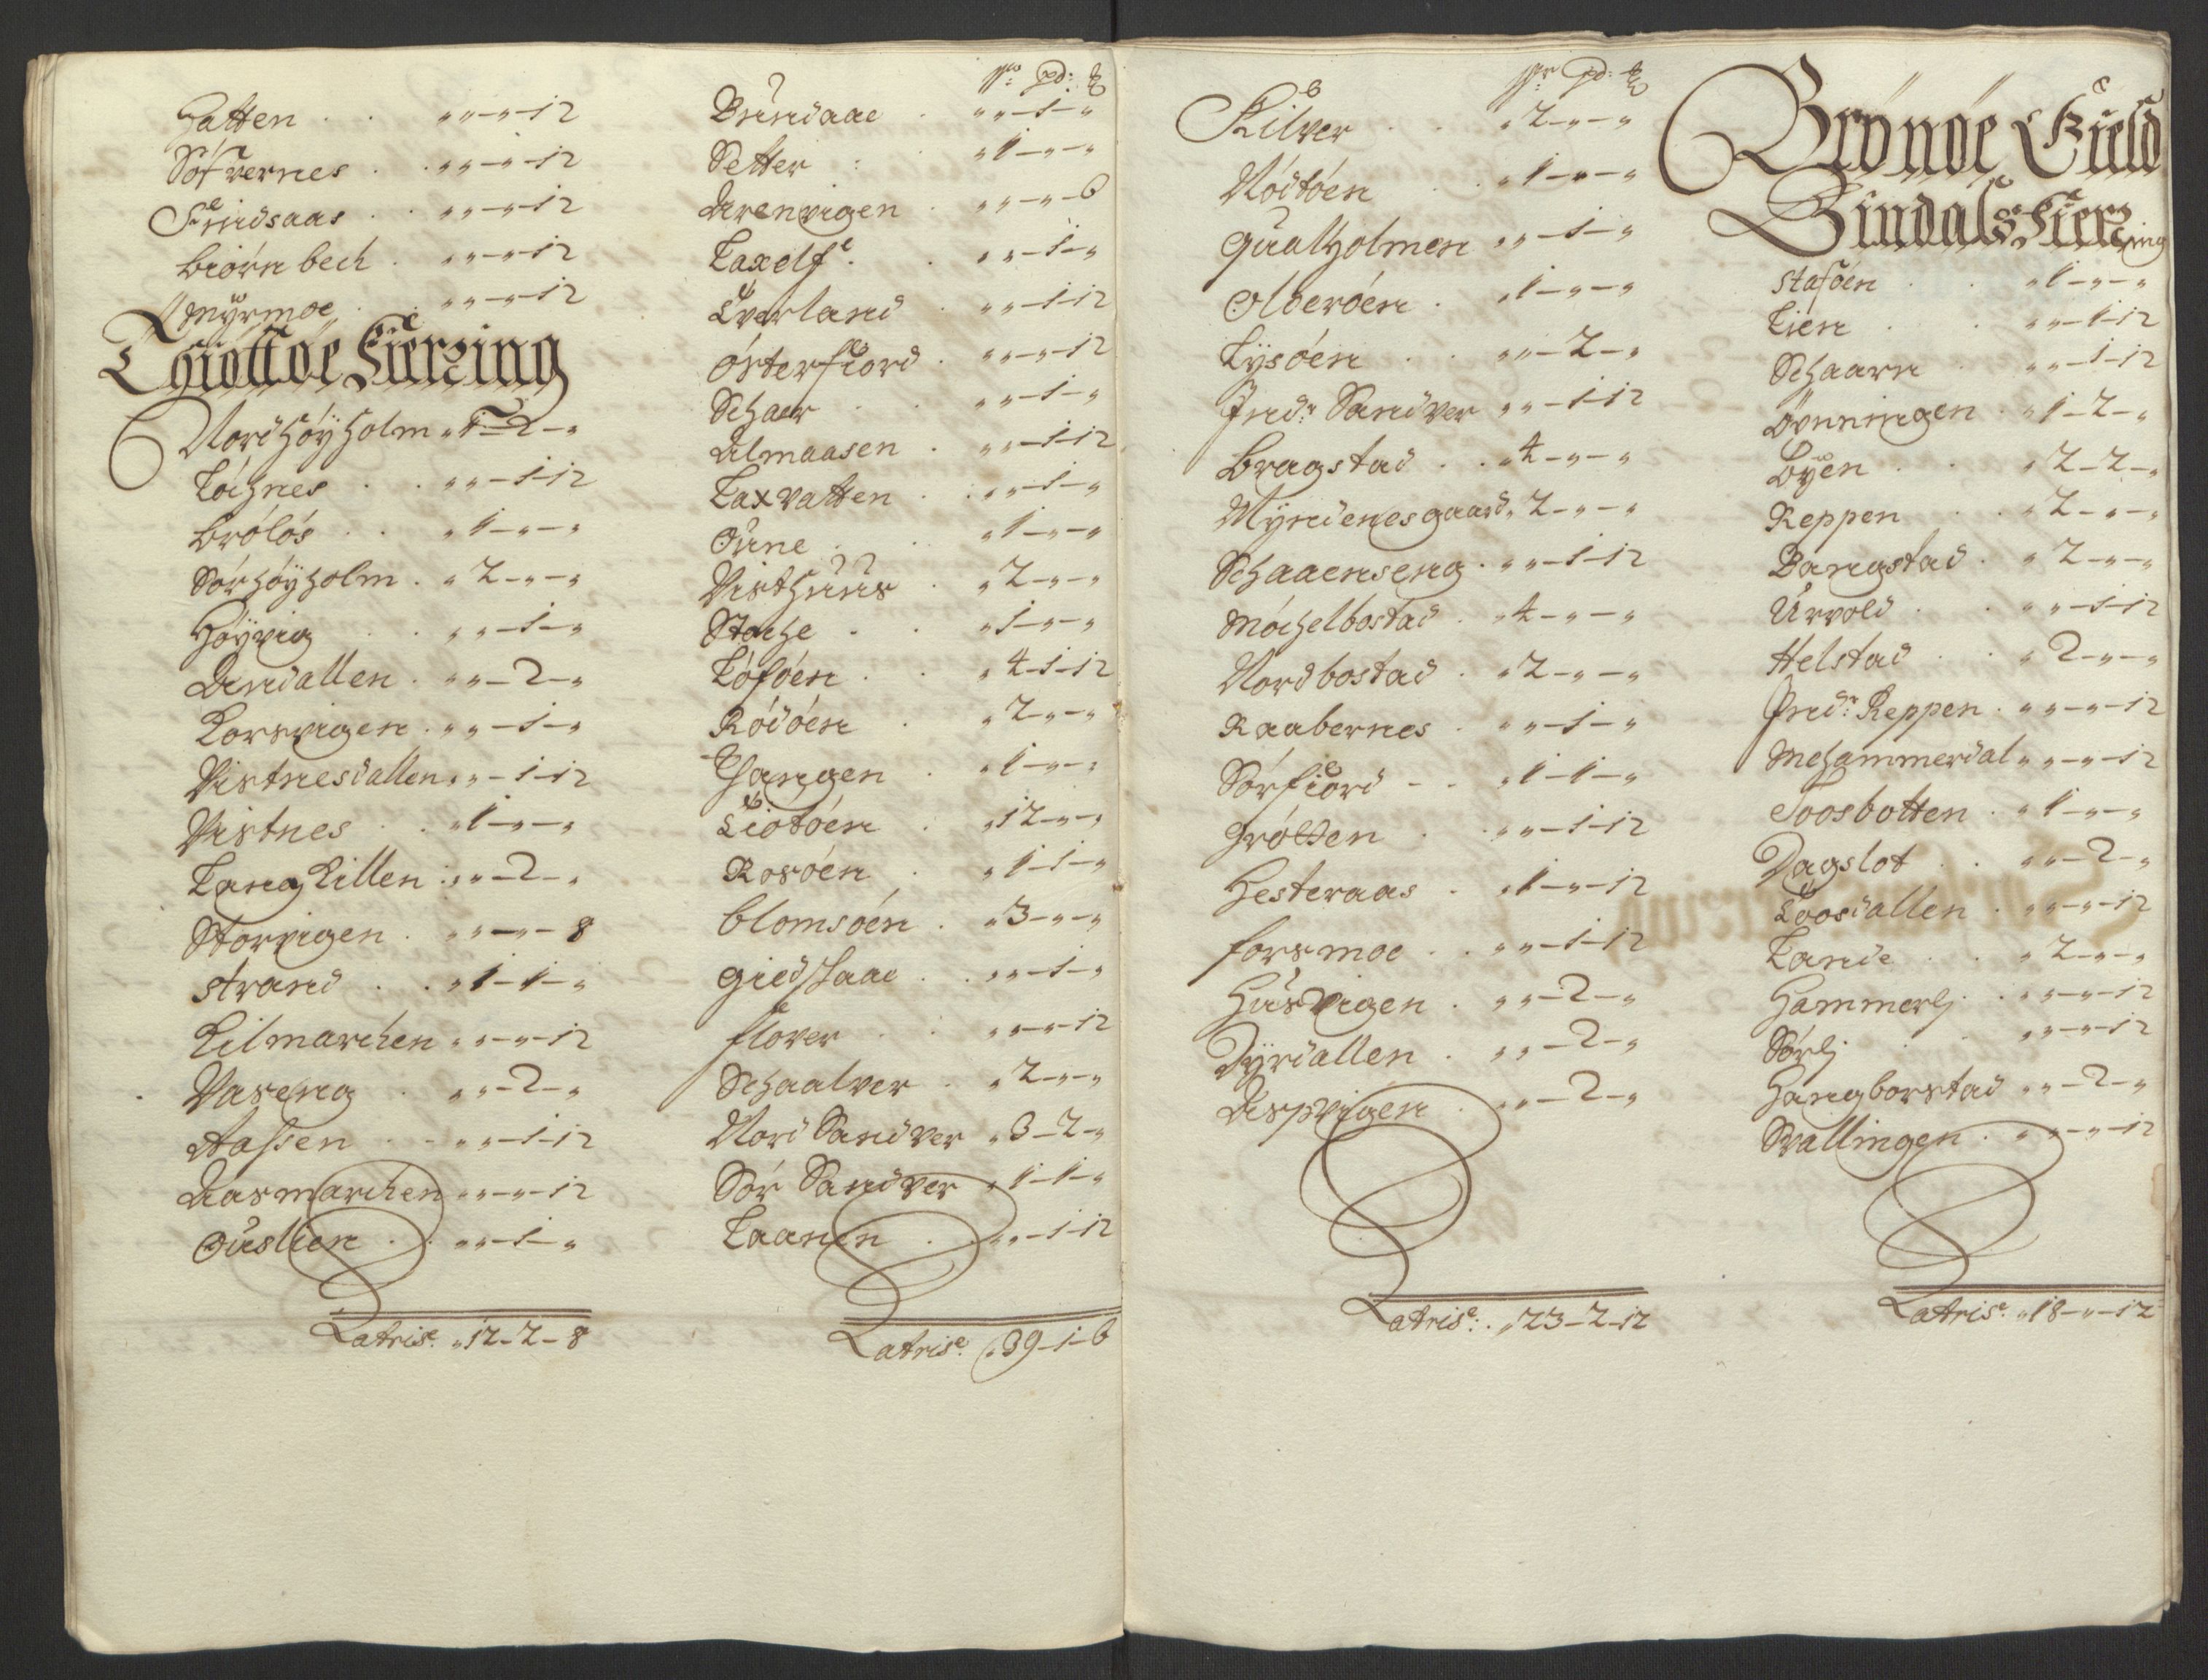 Hatten . . „ „ – „ – 12
Sófvernes . . „ „ – „ – 12
Findsaas . . „ „ – „ – 12
Biórnbech . „ „ – „ – 12
Myrmoe . „ „ – „ – 12
Thióttóe Fierzing
Nordhóÿholm „ 1 – 2 – „
Tóchnes . . „ „ – 1 – 12
Brólós . . „ 1 – „ – „
Sórhóÿholm . „ 2 – „ – „
Hóÿvig . . „ „ – 1 – „
Andallen . „ „ – 2 – „
Korsvigen . „ „ – 1 – „
Vistnesdallen „ „ – 1 – 12
Vistnes . . „ 1 – „ – „
Langkillen . „ „ – 2 – „
Storvigen . „ „ – „ – 8
Strand . . „ 1 – 1 – „
Kilmarchen „ „ – „ – 12
Vaseng . „ „ – 2 – „
Aassen . . „ „ – 1 – 12
Aasmarchen „ „ – „ – 12
Ouslien . . „ „ – 1 – „
Latris: „ 12 – 2 – 8
W: pd: ℔
Bundaae . „ „ – 1 – „
Setter : „ 1 – „ – „
Arenvigen . „ „ – „ – 6
Laxelf . . „ „ – 1 – „
Everland . „ „ – 1 – 12
Ósterfiord . „ „ – „ – 12
Schaer . . „ „ – 1 – „
Almaasen . „ „ – 1 – 12
Laxvatten . „ „ – 1 – „
Oune . . „ 1 – „ – „
Visthuus . „ 2 – „ – „
Stoche . . „ 1 – „ – „
Lófóen . . „ 4 – 1 – 12
Ródóen . „ 2 – „ – „
Thangen . „ 1 – „ – „
Tiótóen . „ 12 – „ – „
Rosóen . „ 1 – 1 – „
Blomsóen . „ 3 – „ – „
Giedsaae . . „ „ – 1 – „
Flover . . „ „ – „ – 12
Schaalver . „ 2 – „ – „
Nord Sandver „ 3 – 2 – „
Sór Sandver „ 1 – 1 – „
Laanen . . „ „ – 1 – 12
Latris: „ 39 – 1 – 6
W: pd: ℔
Kilver . . „ 2 – „ – „
Nódtóen . . „ 1 – „ – „
Qualholmen „ „ – 1 – „
Olderóen . „ 1 – „ – „
Lÿsóen . . „ „ – 2 – „
Indr: Sandver „ „ – 1 – 12
Bragstad . . „ 4 – „ – „
Mÿndenesgaard „ 2 – „ – „
Schaaenseng . „ „ – 1 – 12
Móchelbostad . „ 4 – „ – „
Nordbostad . „ 2 – „ – „
Raabernes . „ „ – 1 – „
Sórfiord – . „ 1 – 1 – „
Grótten . „ „ – 1 – 12
Hesteraas . „ 1 – „ – 12
Forsmoe . . „ „ – 1 – 12
Husvigen . „ „ – 2 – „
Dÿrdallen . „ „ – 2 – „
Aspvigen . „ „ – 2 – „
Latris: . „ 23 – 2 – 12
Brönöe Gield
Bindals Fierzing
Stafóen . . „ 1 – „ – „
Lien . . „ „ – 1 – 12
Schaarn . „ „ – 1 – 12
Óvnningen . „ 1 – 2 – „
Bÿen . . „ 2 – 2 – „
Reppen . . „ 2 – „ – „
Bangstad . „ 2 – „ – „
Urvold . . „ „ – 1 – 12
Helstad . . „ 2 – „ – „
Indr: Reppen . „ „ – „ – 12
Mehammerdal „ „ – „ – 12
Toosbotten . „ 1 – „ – „
Dagslot . . „ „ – 2 – „
Toosdallen . „ „ – „ – 12
Lande . . „ 2 – „ – „
Hammerlj . . „ „ – „ – 12
Sórlj . . „ „ – „ – 12
Hangborstad „ „ – 2 – „
Svallingen . „ „ – „ – 12
Latris: „ 18 – „ – 12